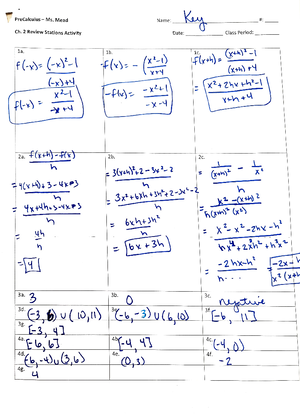 PreCalculus – Ms. Mead
Name: Key #:
Ch. 2 Review Stations Activity
Date: Class Period:
1a.
f(-x) = (-x)²-1
(-x)+4
f(-x) = x²-1
-x+4
1b.
-f(x) = -(x²-1
x+4)
-f(x) = -x²+1
-x-4
1c.
f(x+h) = (x+h)²-1
(x+h)+4
x²+2hx+h²-1
x+h+4
2a.
f(x+h)-f(x)
h
=4(x+h)+3-4x-3
h
=4x+4h+3-4x-3
h
=4h
h
=4
2b.
=3(x+h)²+2-3x²-2
h
=3x²+6xh+3h²+2-3x²-2
h
=6xh+3h²
h
=6x+3h
2c.
=1/(x+h)² - 1/x²
h
=x²-(x+h)²
h(x+h)²(x²)
=x²-x²-2xh-h²
hx⁴+2x³h²+h³x²
=-2hx-h²
h...
=-2x-h
x²(x+h
3a. 3
3b. 0
3c. negative
3d. (-3, 6) ∪ (10, 11)
3e. (-6, -3) ∪ (6, 10)
3f. [-6, 11]
3g. [-3, 4]
4a. [-6, 6]
4b. [-4, 4]
4c. (-4, 0)
4d. (-6, -4) ∪ (3, 6)
4e. (0, 3)
4f. -2
4g. 4